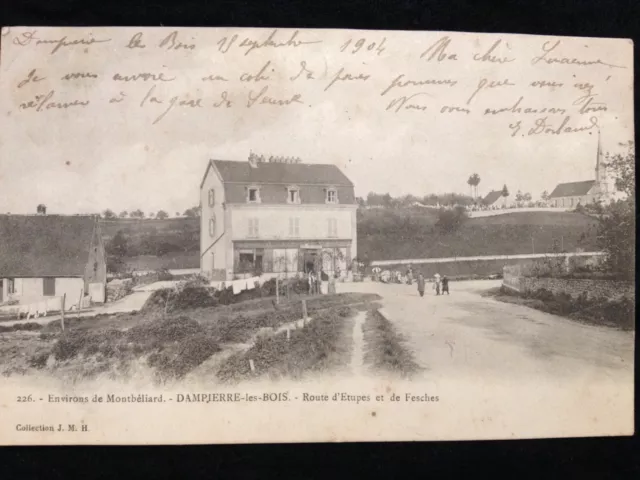 Dampierre les Bois 18 septembre 1904
Ma chère Lucienne
Je vous envoie un colis de poires pommes que vous irez
réclamer à la gare de
Nous vous embrassons tous
226. - Environs de Montbéliard. - DAMPIERRE-les-BOIS. - Route d'Etupes et de Fesches
Collection J. M. H.